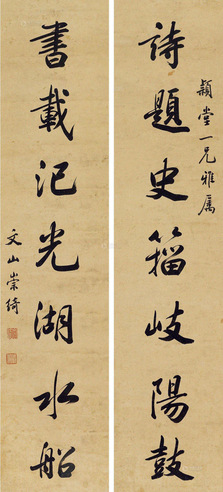 穎堂一兄雅属
詩題史籕岐陽鼓
書載汜光湖水船
文山崇綺